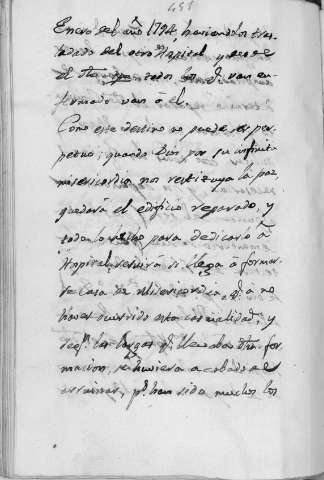 Enero del añ 1794, haviendolos tras-
ladado del otro Hospital, y desde
el dia todos los q.e van en-
fermando van á él.
Como este destino no puede ser per-
petuo, quando Dios por su infinita
misericordia nos restituya la paz,
quedará el edificio reparado, y
todo lo hecho para dedicarlo á
Hospital, servirá si llega á formar-
se Casa de Misericordia, q.e á no
haver ocurrido esta casualidad, y
seg.n los largos q.e llevaba su for-
macion, se huviera acabado de
arruinar, p.s han sido muchos los